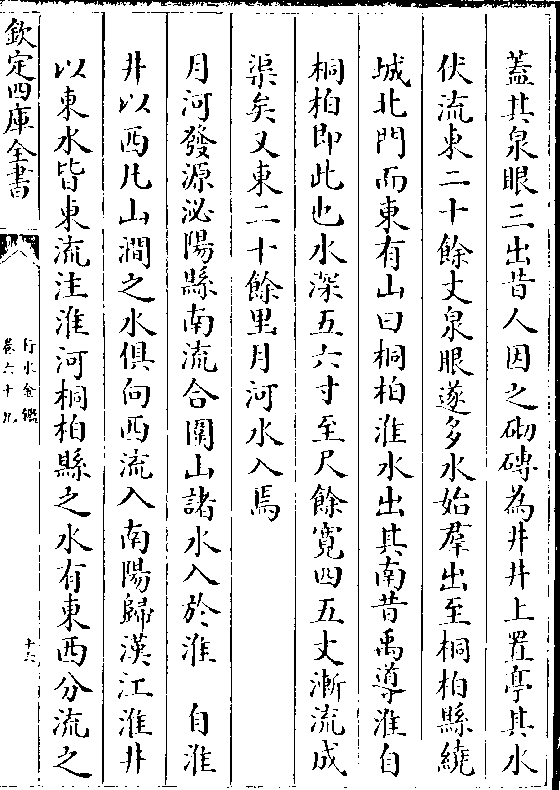 蓋其泉眼三出昔人因之砌磚為井井上置亭其水
伏流東二十餘丈泉眼遂多水始羣出至桐柏縣繞
城北門而東有山曰桐柏淮水出其南昔禹導淮自
桐柏即此也水深五六寸至尺餘寛四五丈漸流成
渠矣又東二十餘里月河水入焉
月河發源泌陽縣南流合闗山諸水入於淮　自淮
井以西凡山澗之水俱向西流入南陽歸漢江淮井
以東水皆東流注淮河桐柏縣之水有東西分流之
欽定四庫全書
行水金鑑
卷六十九
十六